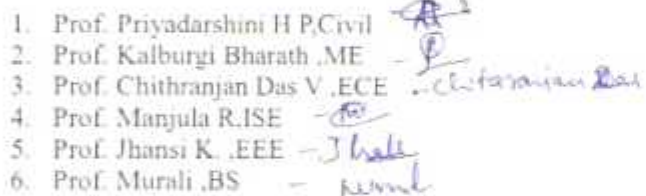 1. Prof. Priyadarshini H P,Civil
2. Prof. Kalburgi Bharath .ME -
3. Prof. Chithranjan Das V .ECE - Chitaranjan Das
4. Prof. Manjula R.ISE -
5. Prof. Jhansi K. .EEE -
6. Prof. Murali .BS -